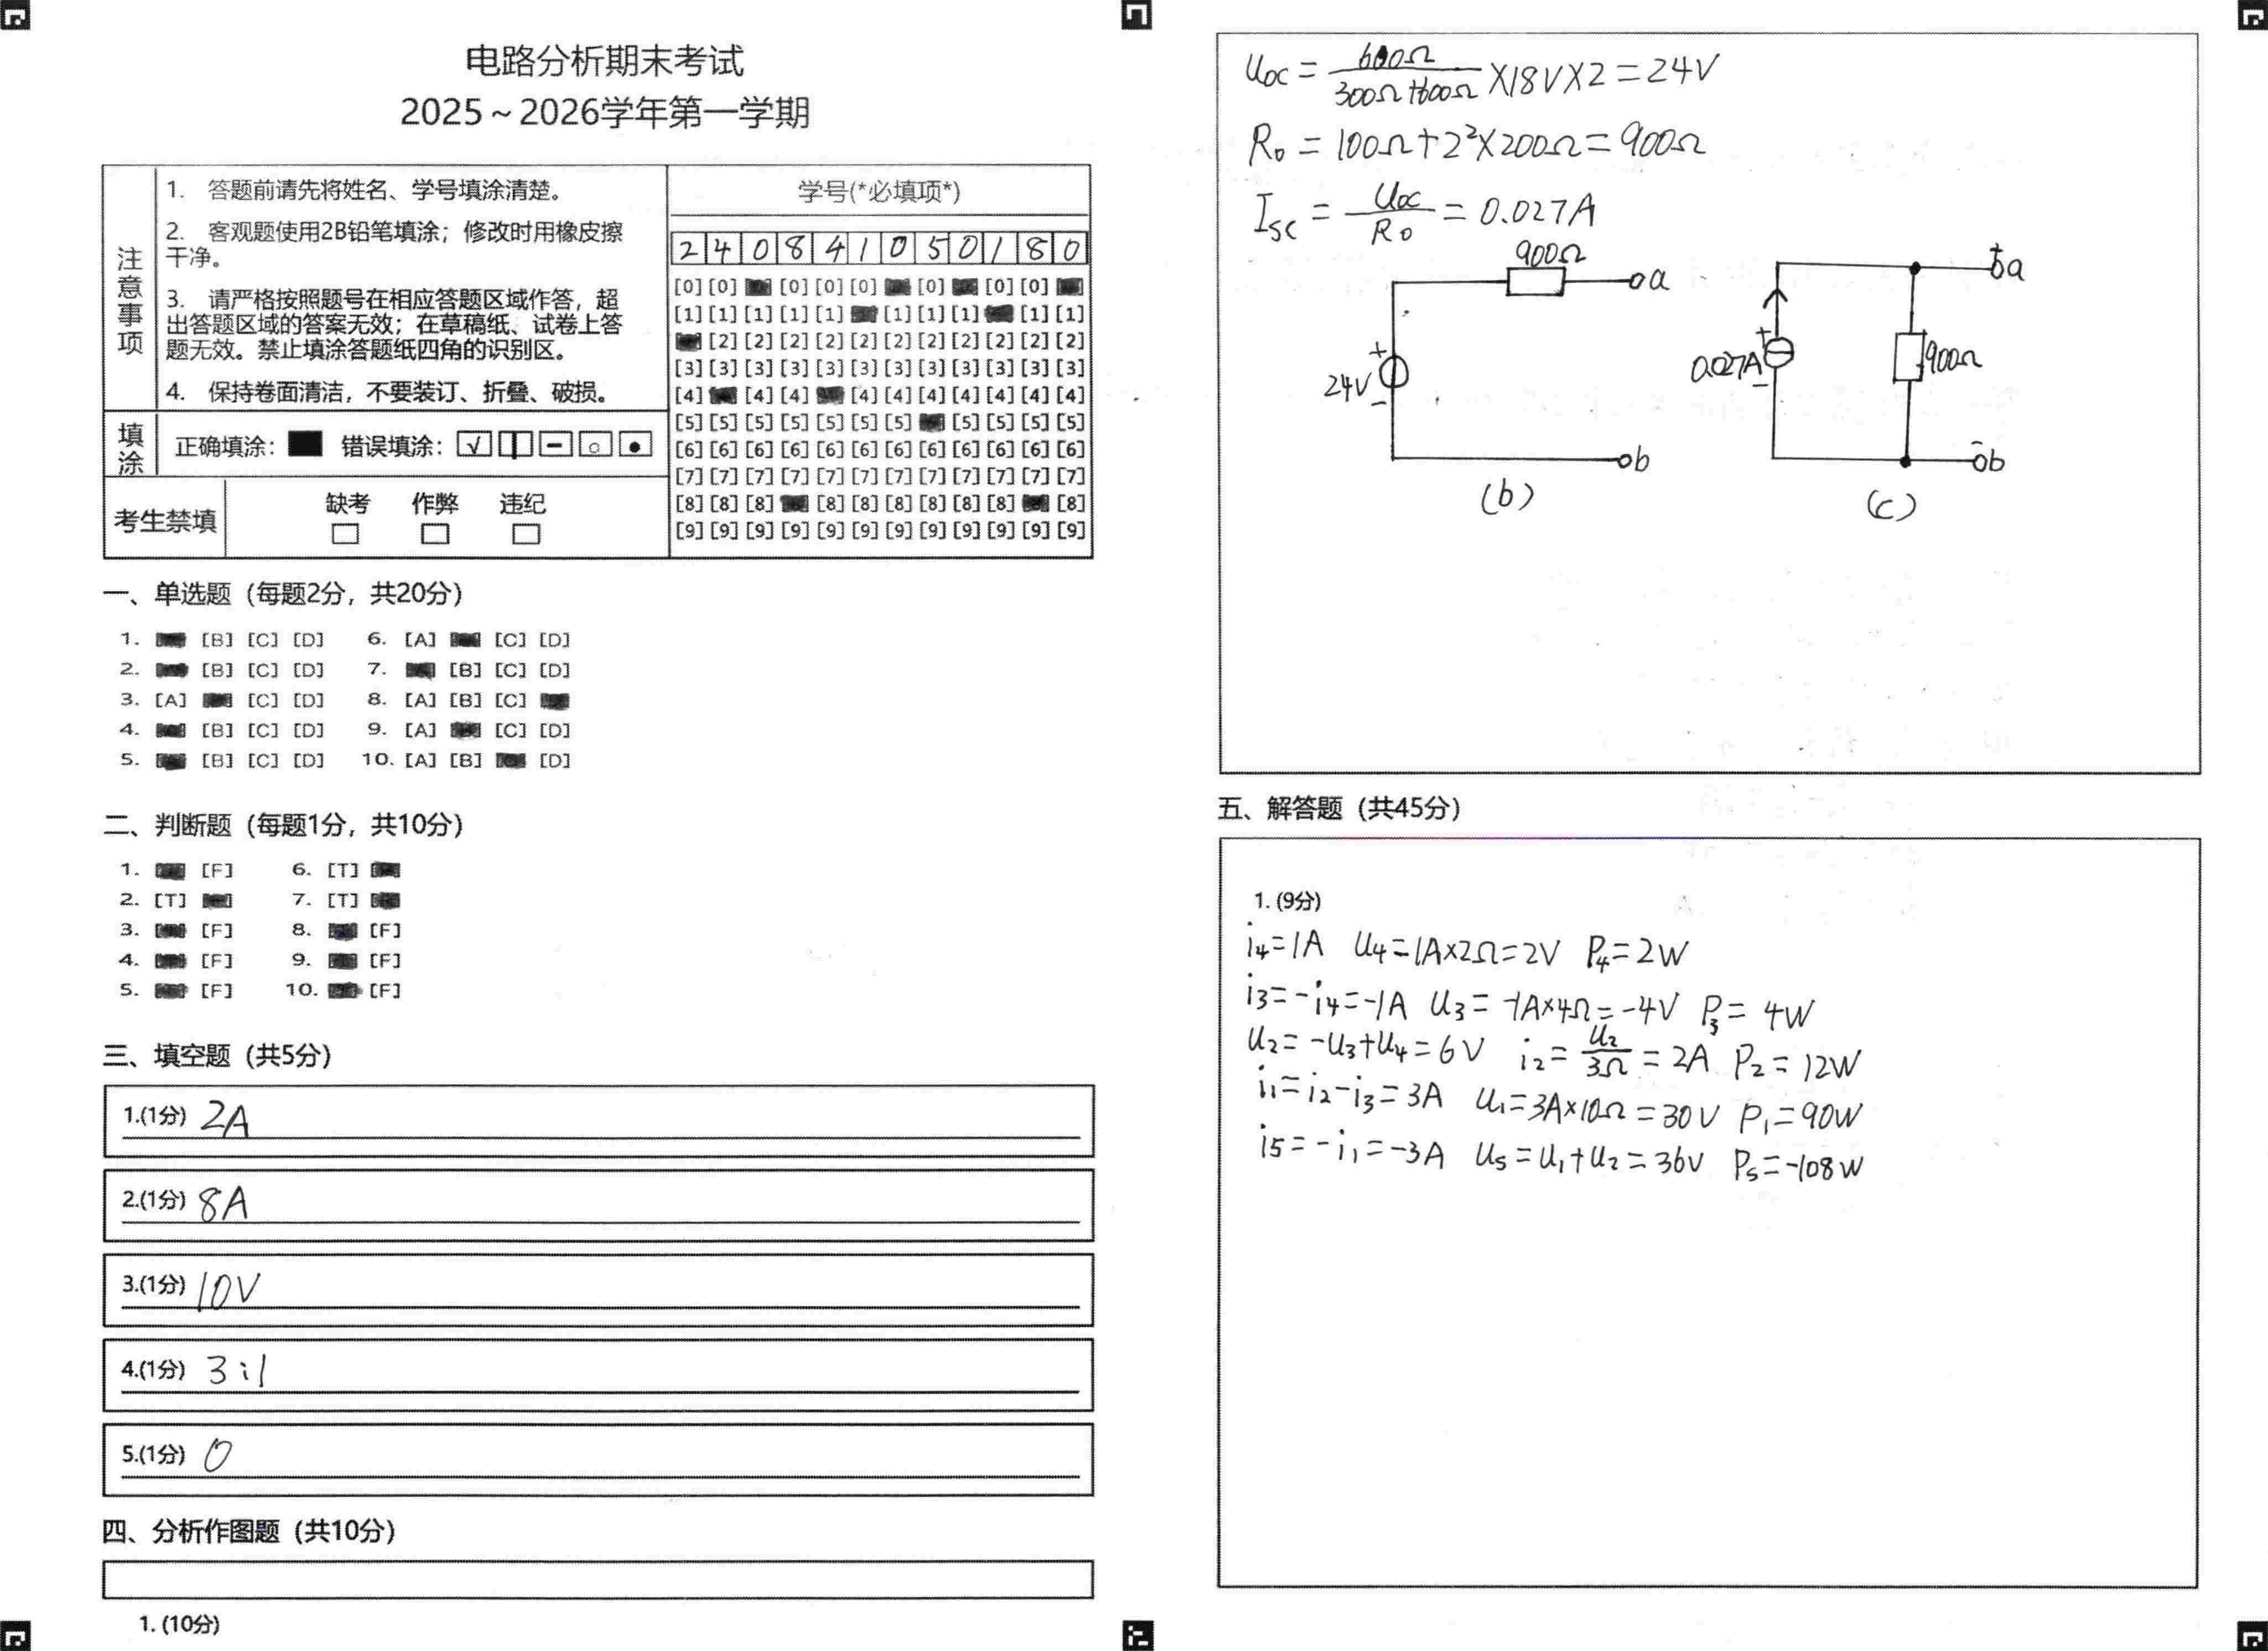 电路分析期末考试
2025～2026学年第一学期
注意事项
1. 答题前请先将姓名、学号填涂清楚。
2. 客观题使用2B铅笔填涂；修改时用橡皮擦
干净。
3. 请严格按照题号在相应答题区域作答，超
出答题区域的答案无效；在草稿纸、试卷上答
题无效。禁止填涂答题纸四角的识别区。
4. 保持卷面清洁，不要装订、折叠、破损。
填涂 正确填涂： 错误填涂： √
考生禁填 缺考 作弊 违纪
学号(*必填项*)
2 4 0 8 4 1 0 5 0 1 8 0
[0] [0] [0] [0] [0] [0] [0] [0]
[1] [1] [1] [1] [1] [1] [1] [1] [1] [1]
[2] [2] [2] [2] [2] [2] [2] [2] [2] [2] [2]
[3] [3] [3] [3] [3] [3] [3] [3] [3] [3] [3] [3]
[4] [4] [4] [4] [4] [4] [4] [4] [4] [4]
[5] [5] [5] [5] [5] [5] [5] [5] [5] [5] [5]
[6] [6] [6] [6] [6] [6] [6] [6] [6] [6] [6] [6]
[7] [7] [7] [7] [7] [7] [7] [7] [7] [7] [7] [7]
[8] [8] [8] [8] [8] [8] [8] [8] [8] [8]
[9] [9] [9] [9] [9] [9] [9] [9] [9] [9] [9] [9]
一、单选题（每题2分，共20分）
1. [B] [C] [D] 6. [A] [C] [D]
2. [B] [C] [D] 7. [B] [C] [D]
3. [A] [C] [D] 8. [A] [B] [C]
4. [B] [C] [D] 9. [A] [C] [D]
5. [B] [C] [D] 10. [A] [B] [D]
二、判断题（每题1分，共10分）
1. [F] 6. [T]
2. [T] 7. [T]
3. [F] 8. [F]
4. [F] 9. [F]
5. [F] 10. [F]
三、填空题（共5分）
1.(1分) 2A
2.(1分) 8A
3.(1分) 10V
4.(1分) 3:1
5.(1分) 0
四、分析作图题（共10分）
1. (10分)
Uoc = 600Ω/(300Ω+600Ω) ×18V×2=24V
R₀ = 100Ω+2²×200Ω=900Ω
Isc = Uoc/R₀ = 0.027A
900Ω a 24V + - b (b)
+ a 0.027A + - 900Ω - b (c)
五、解答题（共45分）
1. (9分)
i₄=1A U₄=1A×2Ω=2V P₄=2W
i₃=-i₄=-1A U₃=-1A×4Ω=-4V P₃=4W
U₂=-U₃+U₄=6V i₂=U₂/3Ω=2A P₂=12W
i₁=i₂-i₃=3A U₁=3A×10Ω=30V P₁=90W
i5=-i₁=-3A U₅=U₁+U₂=36V P₅=-108W